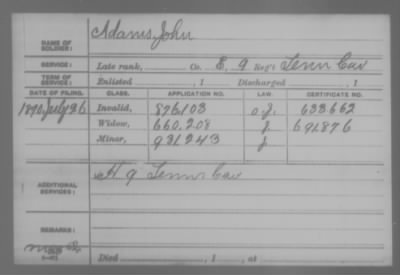 Adams, John
NAME OF SOLDIER:
SERVICE: Late rank, Co. E, 9 Reg't Tenn Cav
TERM OF SERVICE: Enlisted , 1 Discharged , 1
DATE OF FILING. CLASS. APPLICATION NO. LAW. CERTIFICATE NO.
1890, July 26 Invalid, 876103 633662
Widow, 660,208 J. 691876
Minor, 931243 J
ADDITIONAL SERVICES: H 9 Tenn Cav
REMARKS:
Died , 1 , at